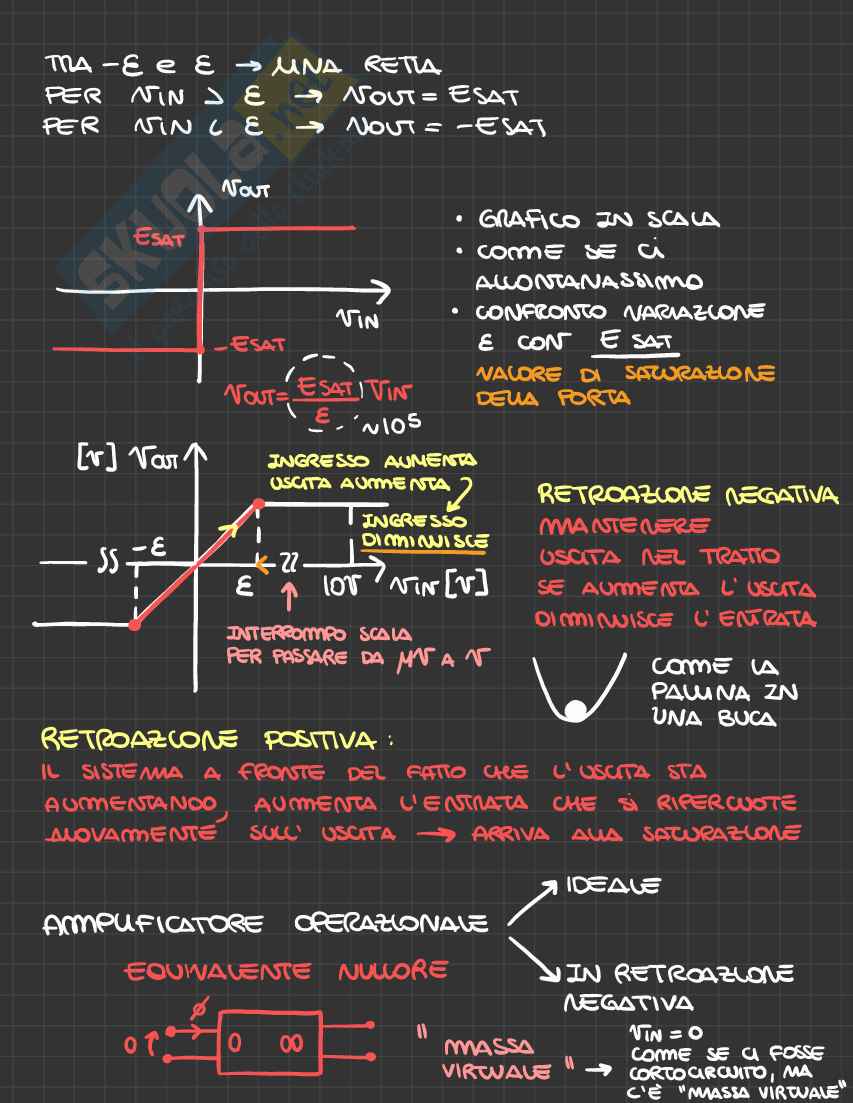 TRA -ε e ε → UNA RETTA
PER VIN > ε → VOUT = ESAT
PER VIN < ε → VOUT = -ESAT
SKUOLA.net
VOUT
ESAT
VIN
-ESAT
• GRAFICO IN SCALA
• COME SE CI
ALLONTANASSIMO
• CONFRONTO VARIAZIONE
ε CON ESAT
VALORE DI SATURAZIONE
DELLA PORTA
VOUT = ESAT/ε VIN
~10⁵
[V] VOUT
INGRESSO AUMENTA
USCITA AUMENTA
INGRESSO
DIMINUISCE
-ε
ε
10V
VIN [V]
INTERROMPO SCALA
PER PASSARE DA μV A V
RETROAZIONE NEGATIVA
MANTENERE
USCITA NEL TRATTO
SE AUMENTA L'USCITA
DIMINUISCE L'ENTRATA
COME LA
PALLINA IN
UNA BUCA
RETROAZIONE POSITIVA:
IL SISTEMA A FRONTE DEL FATTO CHE L'USCITA STA
AUMENTANDO, AUMENTA L'ENTRATA CHE SI RIPERCUOTE
NUOVAMENTE SULL'USCITA → ARRIVA ALLA SATURAZIONE
AMPLIFICATORE OPERAZIONALE
IDEALE
IN RETROAZIONE
NEGATIVA
EQUIVALENTE NULLORE
ø
0
0 ∞
" MASSA
VIRTUALE " →
VIN = 0
COME SE CI FOSSE
CORTOCIRCUITO, MA
C'È "MASSA VIRTUALE"